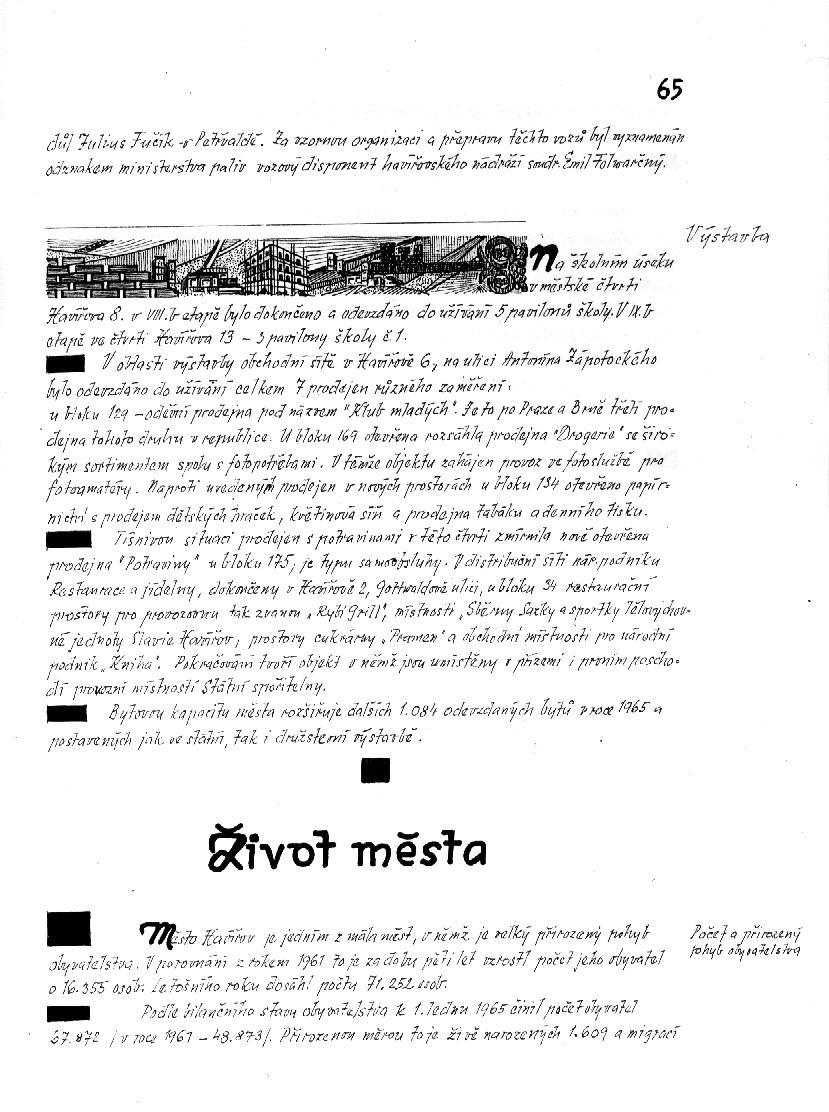 65
důl Julius Fučík v Petřvaldě. Za vzornou organizaci a přepravu těchto vozů byl vyznamenán
odznakem ministerstva paliv vozový disponent havířovského nádraží soudr. Emil Folwarčný.
Výstavba
Na školním úseku
v městské čtvrti
Havířova 8. v VIII.b etapě bylo dokončeno a odevzdáno do užívání 5 pavilonů školy. V IX.b
etapě ve čtvrti Havířova 13 - 3 pavilony školy č.1.
V oblasti výstavby obchodní sítě v Havířově 6, na ulici Antonína Zápotockého
bylo odevzdáno do užívání celkem 7 prodejen různého zaměření:
u bloku 129 - oděvní prodejna pod názvem "Klub mladých". Je to po Praze a Brně třetí pro=
dejna tohoto druhu v republice. U bloku 169 otevřena rozsáhlá prodejna "Drogerie" se širo=
kým sortimentem spolu s fotopotřebami. V témže objektu zahájen provoz ve fotoslužbě pro
fotoamatéry. Naproti uvedeným prodejen v nových prostorách u bloku 134 otevřeno papír=
nictví s prodejem dětských hraček, květinová síň a prodejna tabáku a denního tisku.
Tíšnivou situaci prodejen s potravinami v této čtvrti zmírnila nově otevřená
prodejna "Potraviny" u bloku 175, je typu samoobsluhy. V distribuční síti nár. podniku
Restaurace a jídelny, dokončeny v Havířově 2, Gottwaldově ulici, u bloku 34 restaurační
prostory pro provozovnu tak zvanou „Rybí Grill", místnosti „Sběrny Sazky a sportky Tělovýchov=
né jednoty Slavie Havířov, prostory cukrárny „Pramen" a obchodní místnosti pro národní
podnik „Kniha". Pokračování tvoří objekt v němž jsou umístěny v přízemí i prvním poscho=
dí provozní místnosti Státní spořitelny.
Bytovou kapacitu města rozšiřuje dalších 1.084 odevzdaných bytů v roce 1965 a
postavených jak ve státní, tak i družstevní výstavbě.
Život města
Počet a přirozený
pohyb obyvatelstva
Město Havířov je jedním z mála měst, v němž je velký přirozený pohyb
obyvatelstva. V porovnání z rokem 1961 to je za dobu pěti let vzrostl počet jeho obyvatel
o 16.355 osob. Letošního roku dosáhl počtu 71.252 osob.
Podle bilančního stavu obyvatelstva k 1. lednu 1965 činil počet obyvatel
67.872 /v roce 1961 - 48.873/. Přirozenou měrou to je živě narozených 1.609 a migrací